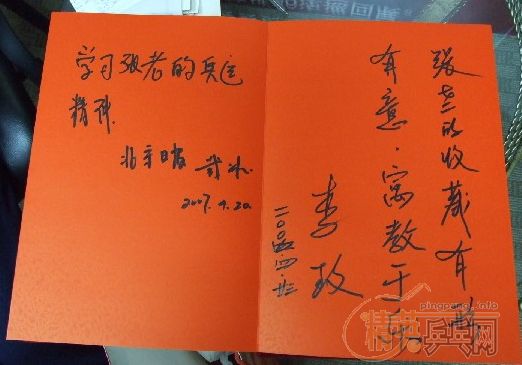 学习张老的兵运
精神.
北京晚报
2007.4.20
张老的收藏有
有意.寓教于乐
李玫
二〇〇
pingpang.info
精英乒乓网